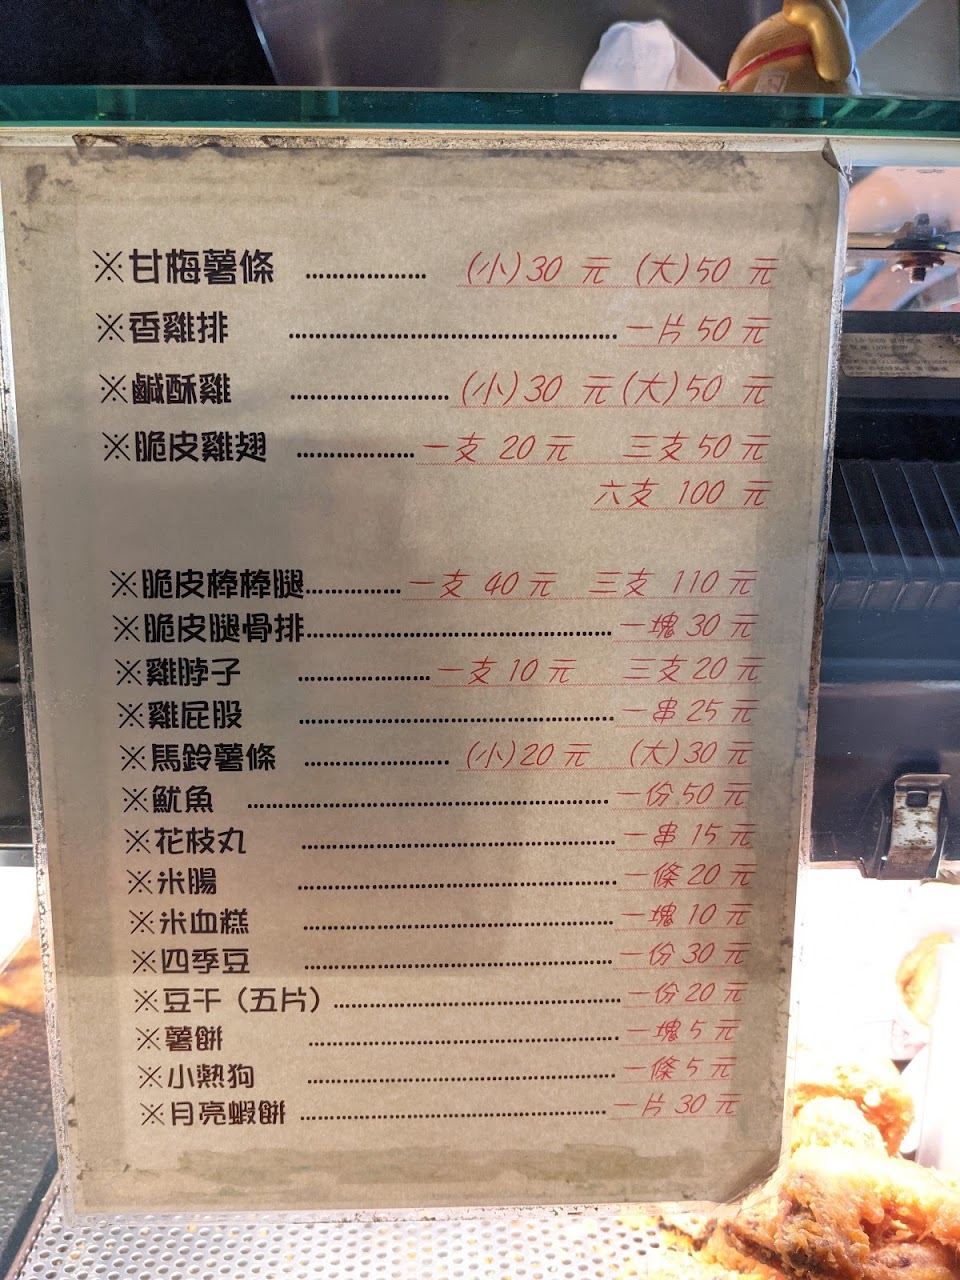 ※甘梅薯條 ……………… (小)30 元 (大)50 元
※香雞排 ……………… 一片 50 元
※鹹酥雞 ……………… (小)30 元(大)50 元
※脆皮雞翅 ……………… 一支 20 元 三支 50 元
六支 100 元
※脆皮棒棒腿……………… 一支 40 元 三支 110 元
※脆皮腿骨排……………… 一塊 30 元
※雞脖子 ……………… 一支 10 元 三支 20 元
※雞屁股 ……………… 一串 25 元
※馬鈴薯條 ……………… (小)20 元 (大)30 元
※魷魚 ……………… 一份 50 元
※花枝丸 ……………… 一串 15 元
※米腸 ……………… 一條 20 元
※米血糕 ……………… 一塊 10 元
※四季豆 ……………… 一份 30 元
※豆干（五片）……………… 一份 20 元
※薯餅 ……………… 一塊 5 元
※小熱狗 ……………… 一條 5 元
※月亮蝦餅 ……………… 一片 30 元